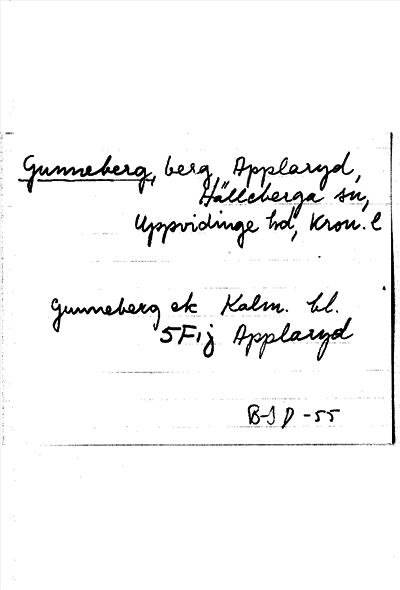 Gunneberg, berg, Applaryd,
Hälleberga sn,
Uppvidinge hd, Kron. l
Gunneberg ek Kalm. bl.
5F1j Applaryd
B-J D -55